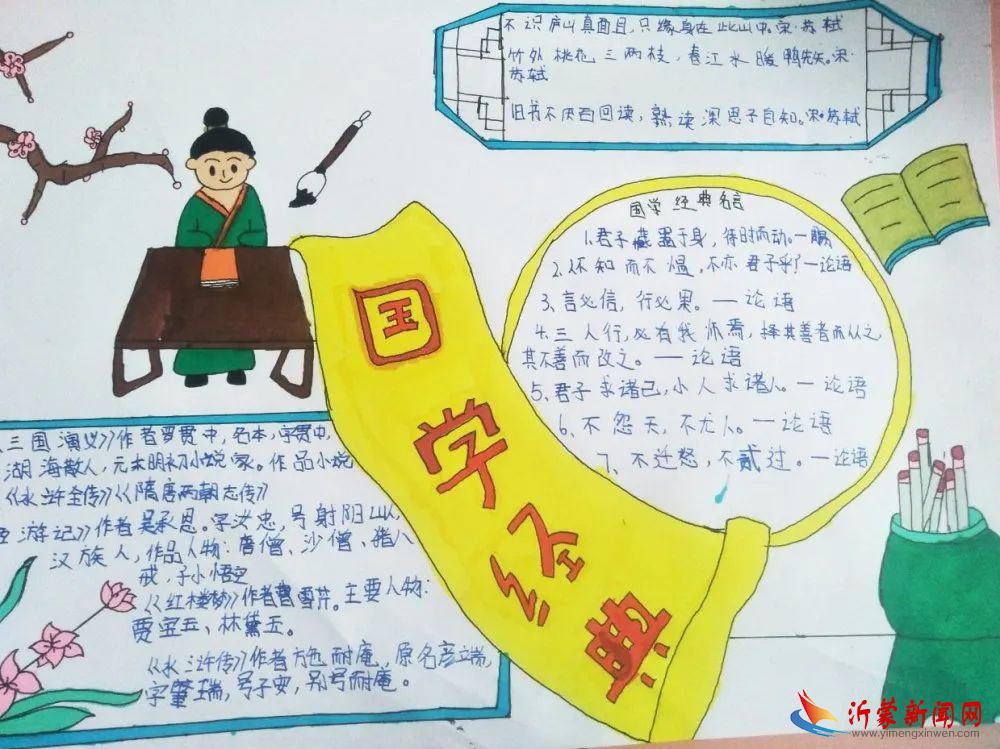 不识庐山真面目,只缘身在此山中。宋·苏轼
竹外桃花三两枝,春江水暖鸭先知。宋·
苏轼
旧书不厌百回读,熟读深思子自知。宋·苏轼
国学经典名言
1.君子藏器于身,待时而动。一
2.不知而不愠,不亦君子乎?一论语
3、言必信,行必果。一论语
4.三人行,必有我师焉,择其善者而从之,
其不善而改之。一论语
5、君子求诸己,小人求诸人。一论语
6、不怨天,不尤人。一论语
7、不迁怒,不贰过。一论语
国学经典
三国演义》作者罗贯中,名本,字贯中,
湖海散人,元末明初小说家。作品小说
《水浒全传》《隋唐两朝志传》
游记》作者吴承恩。字汝忠,号射阳山人,
汉族人,作品人物:唐僧、沙僧、猪八
戒,子小悟空
《红楼梦》作者曹雪芹。主要人物:
贾宝玉、林黛玉。
《水浒传》作者方色耐庵,原名彦端,
字肇瑞,号子安,别号耐庵。
沂蒙新闻网
www.yimengxinwen.com